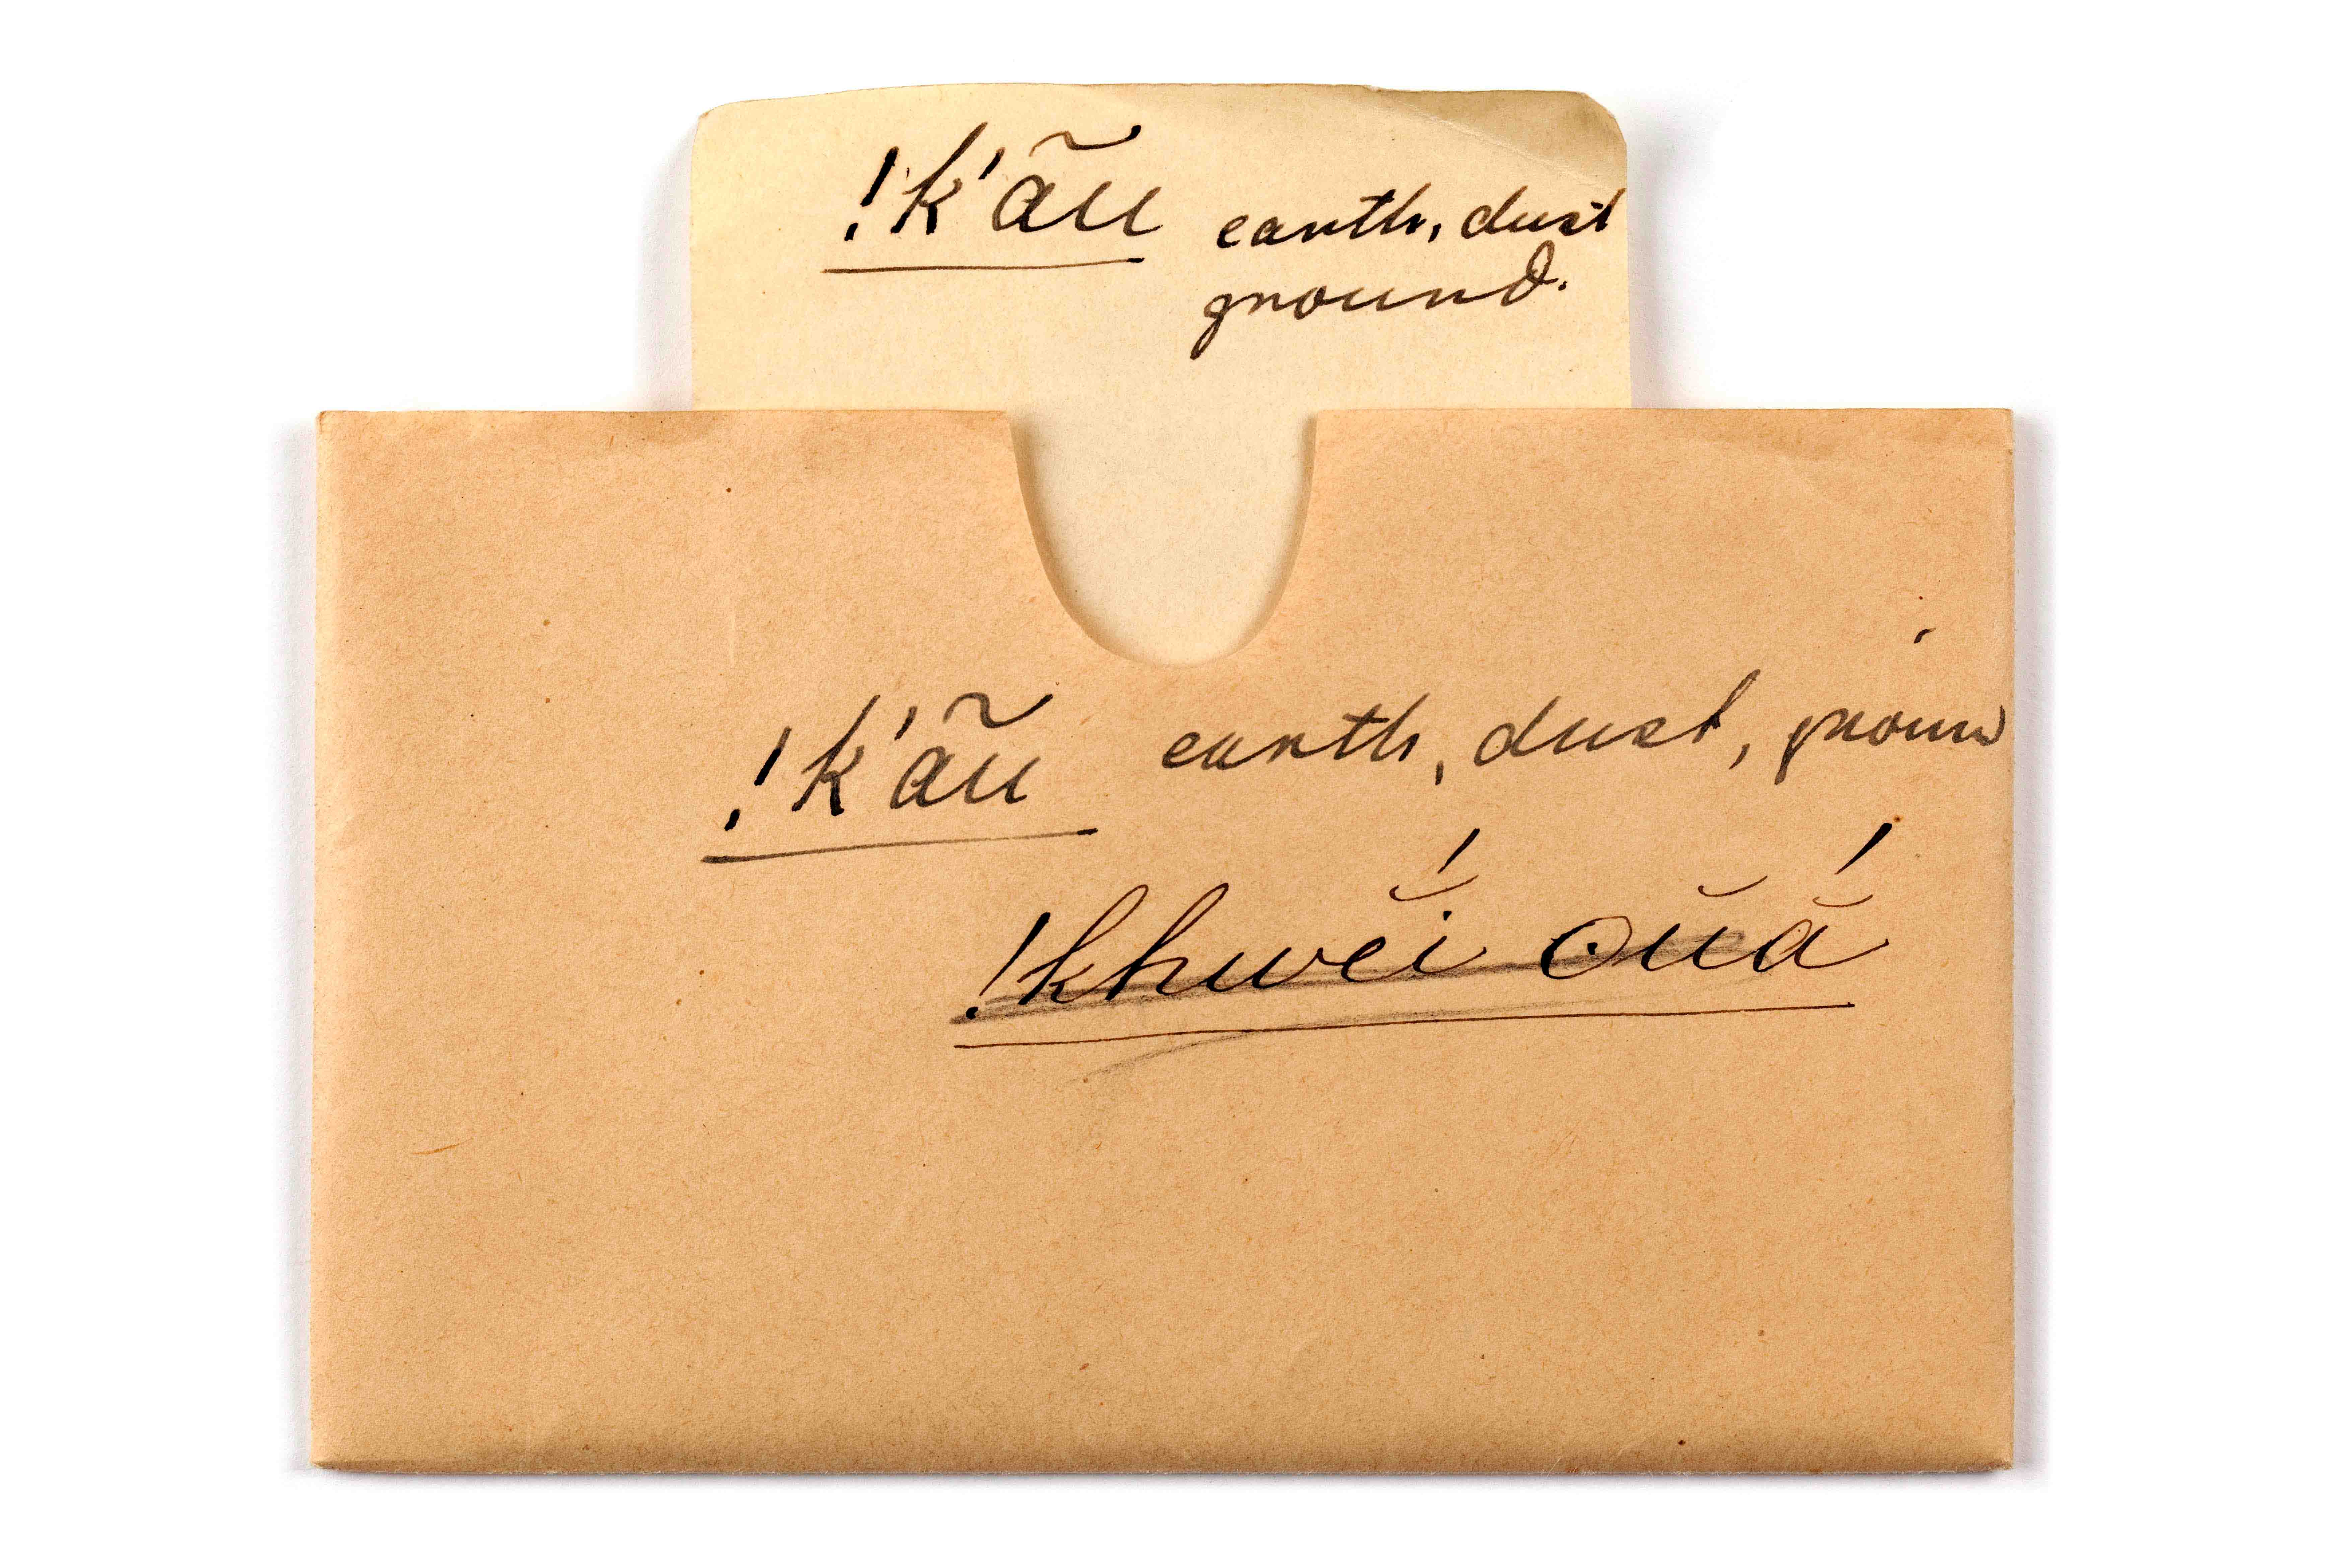 !k'ãu earth, dust
ground.
!k'ãu earth, dust, groun
!khwĕ́i ŏŭắ